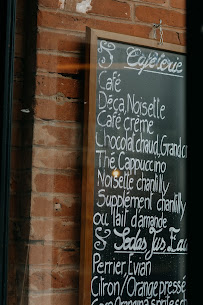 Caféterie
Café
Déca, Noisette
Café crème
Chocolat chaud, Grand c
Thé, Cappuccino
Noisette chantilly
Supplement chantilly
ou lait d'amande
Sodas, Jus, Eau
Perrier, Evian
Citron / Orange pressé
Orangina